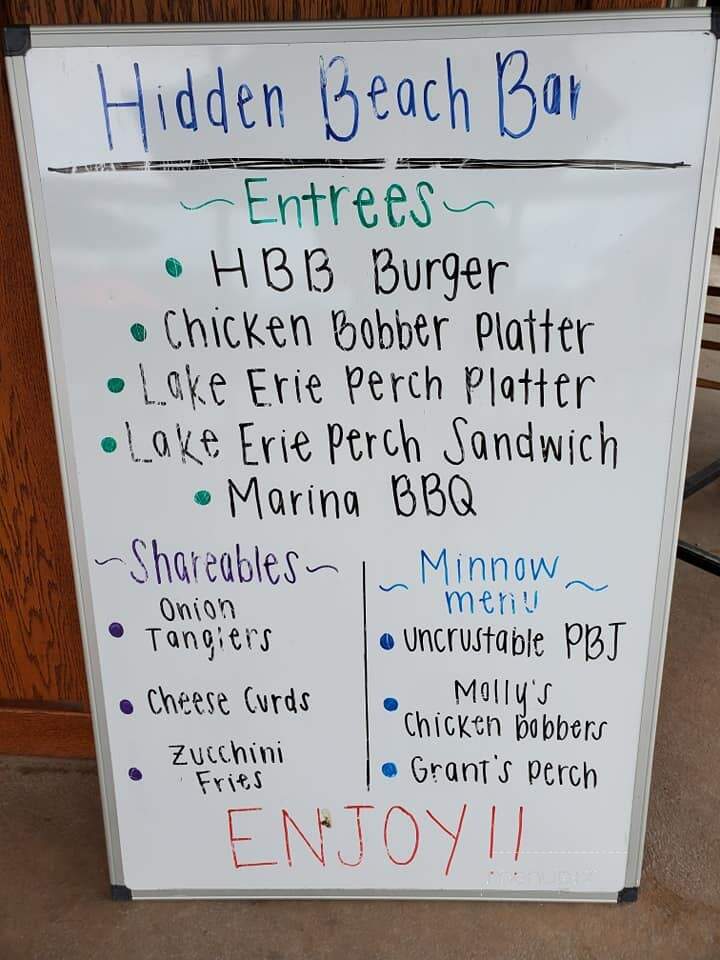 Hidden Beach Bar
~Entrees~
• HBB Burger
• Chicken Bobber Platter
• Lake Erie Perch Platter
• Lake Erie Perch Sandwich
• Marina BBQ
~Shareables~
• Onion
Tanglers
• Cheese Curds
• Zucchini
Fries
~Minnow
menu~
• uncrustable PBJ
• Molly's
chicken bobbers
• Grant's perch
ENJOY!!
menupix